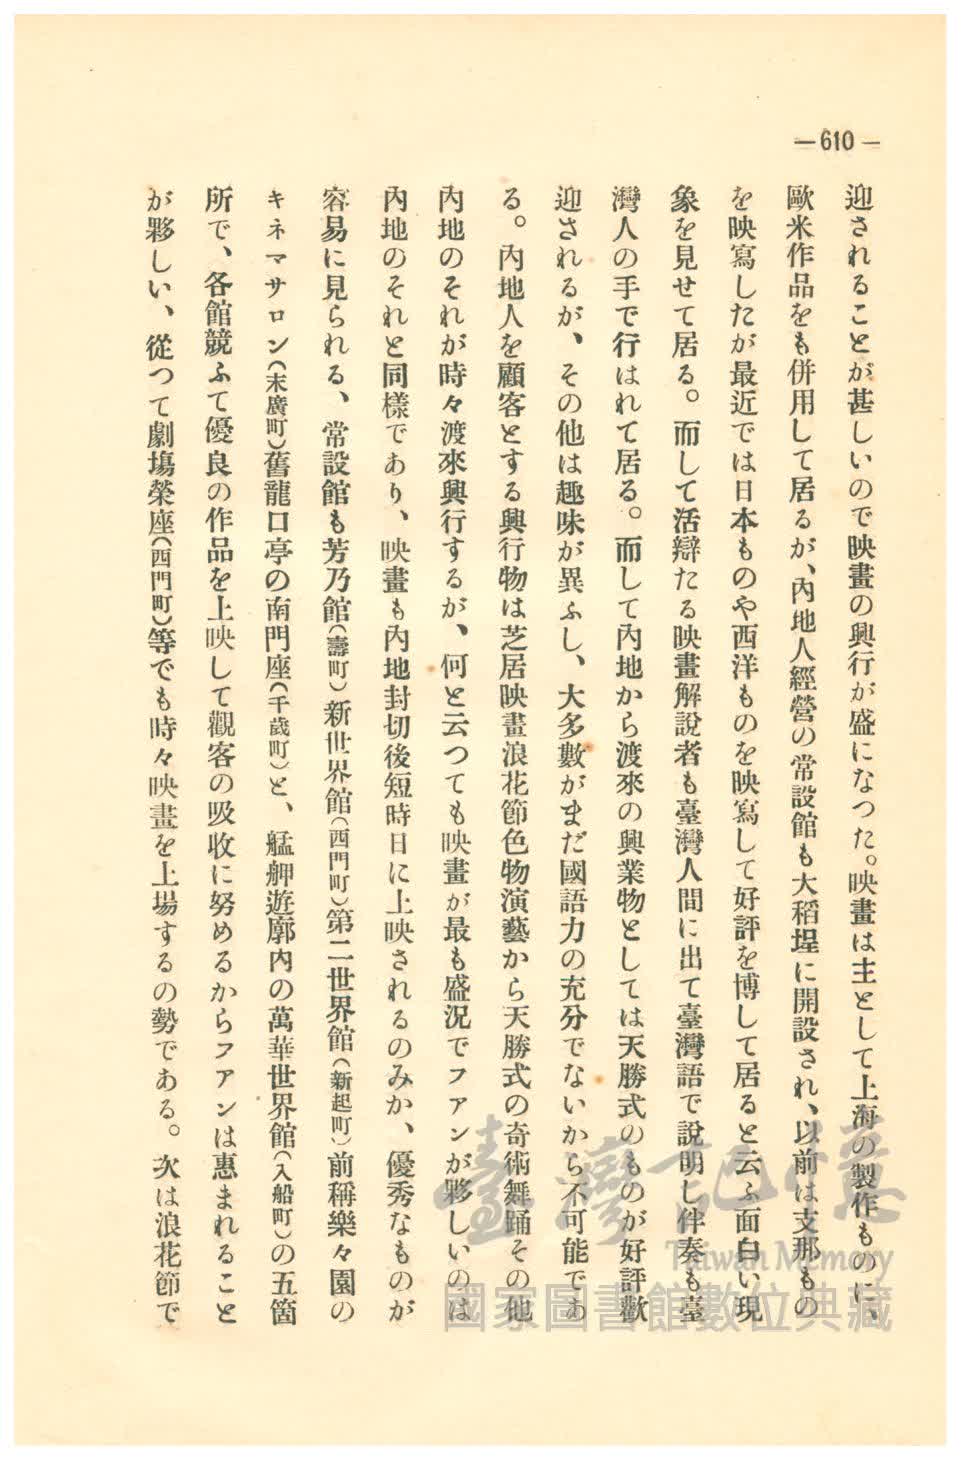 —610—
迎されることが甚しいので映畫の興行が盛になつた。映畫は主として上海の製作ものに、
歐米作品をも併用して居るが、內地人經營の常設館も大稻埕に開設され、以前は支那もの
を映寫したが最近では日本ものや西洋ものを映寫して好評を博して居ると云ふ面白い現
象を見せて居る。而して活辯たる映畫解說者も臺灣人間に出て臺灣語で說明し伴奏も臺
灣人の手で行はれて居る。而して內地から渡來の興業物としては天勝式のものが好評歡
迎されるが、その他は趣味が異ふし、大多數がまだ國語力の充分でないから不可能であ
る。內地人を顧客とする興行物は芝居映畫浪花節色物演藝から天勝式の奇術舞踊その他
內地のそれが時々渡來興行するが、何と云つても映畫が最も盛況でファンが夥しいのは
內地のそれと同樣であり、映畫も內地封切後短時日に上映されるのみか、優秀なものが
容易に見られる、常設館も芳乃館(壽町)新世界館(西門町)第二世界館(新起町)前稱樂々園の
キネマサロン(末廣町)舊龍口亭の南門座(千歲町)と、艋舺遊廓內の萬華世界館(入船町)の五箇
所で、各館競ふて優良の作品を上映して觀客の吸收に努めるからファンは惠まれること
が夥しい、從つて劇塲榮座(西門町)等でも時々映畫を上場するの勢である。次は浪花節で
臺灣記憶
Taiwan Memory
國家圖書館數位典藏